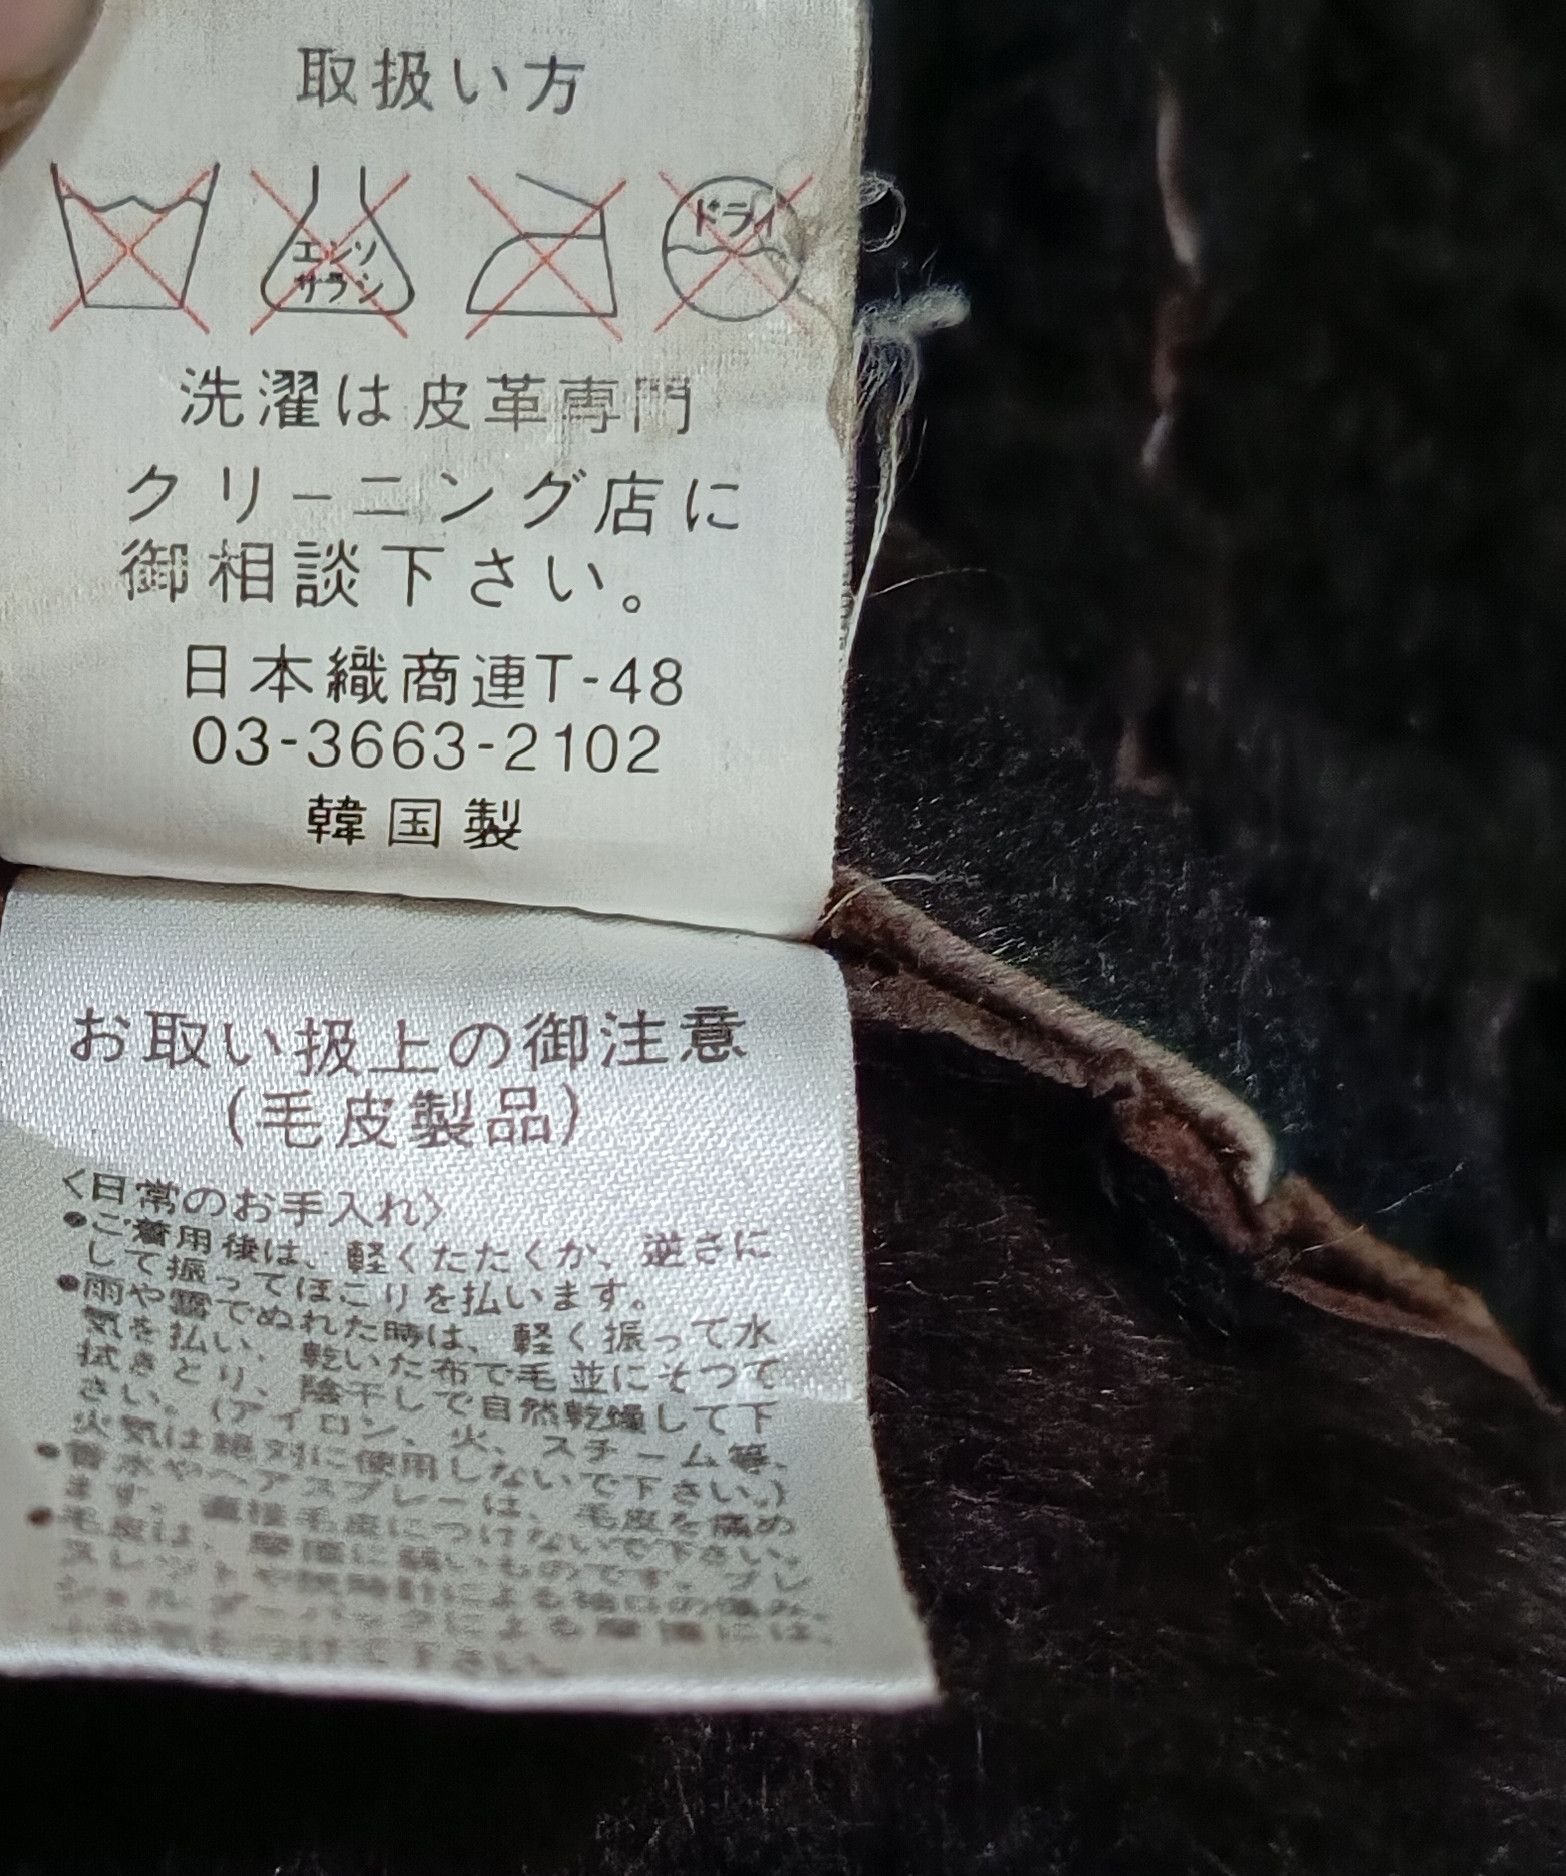 取扱い方
エンソ
サラシ
ドライ
洗濯は皮革専門
クリーニング店に
御相談下さい。
日本織商連T-48
03-3663-2102
韓国製
お取い扱上の御注意
(毛皮製品)
<日常のお手入れ>
●ご着用後は、軽くたたくか、逆さに
して振ってほこりを払います。
●雨や雪でぬれた時は、軽く振って水
気を払い、乾いた布で毛並にそつて
拭きとり、陰干しで自然乾燥して下
さい。(アイロン、火、スチーム等、
火気は絶対に使用しないで下さい。)
●香水やヘアスプレーは、毛皮を痛め
ます。直接毛皮につけないで下さい。
●毛皮は、摩擦に弱いものです。ブレ
スレットや腕時計による袖口の傷み、
ショルダーバックによる摩擦には、
つけて下さい。